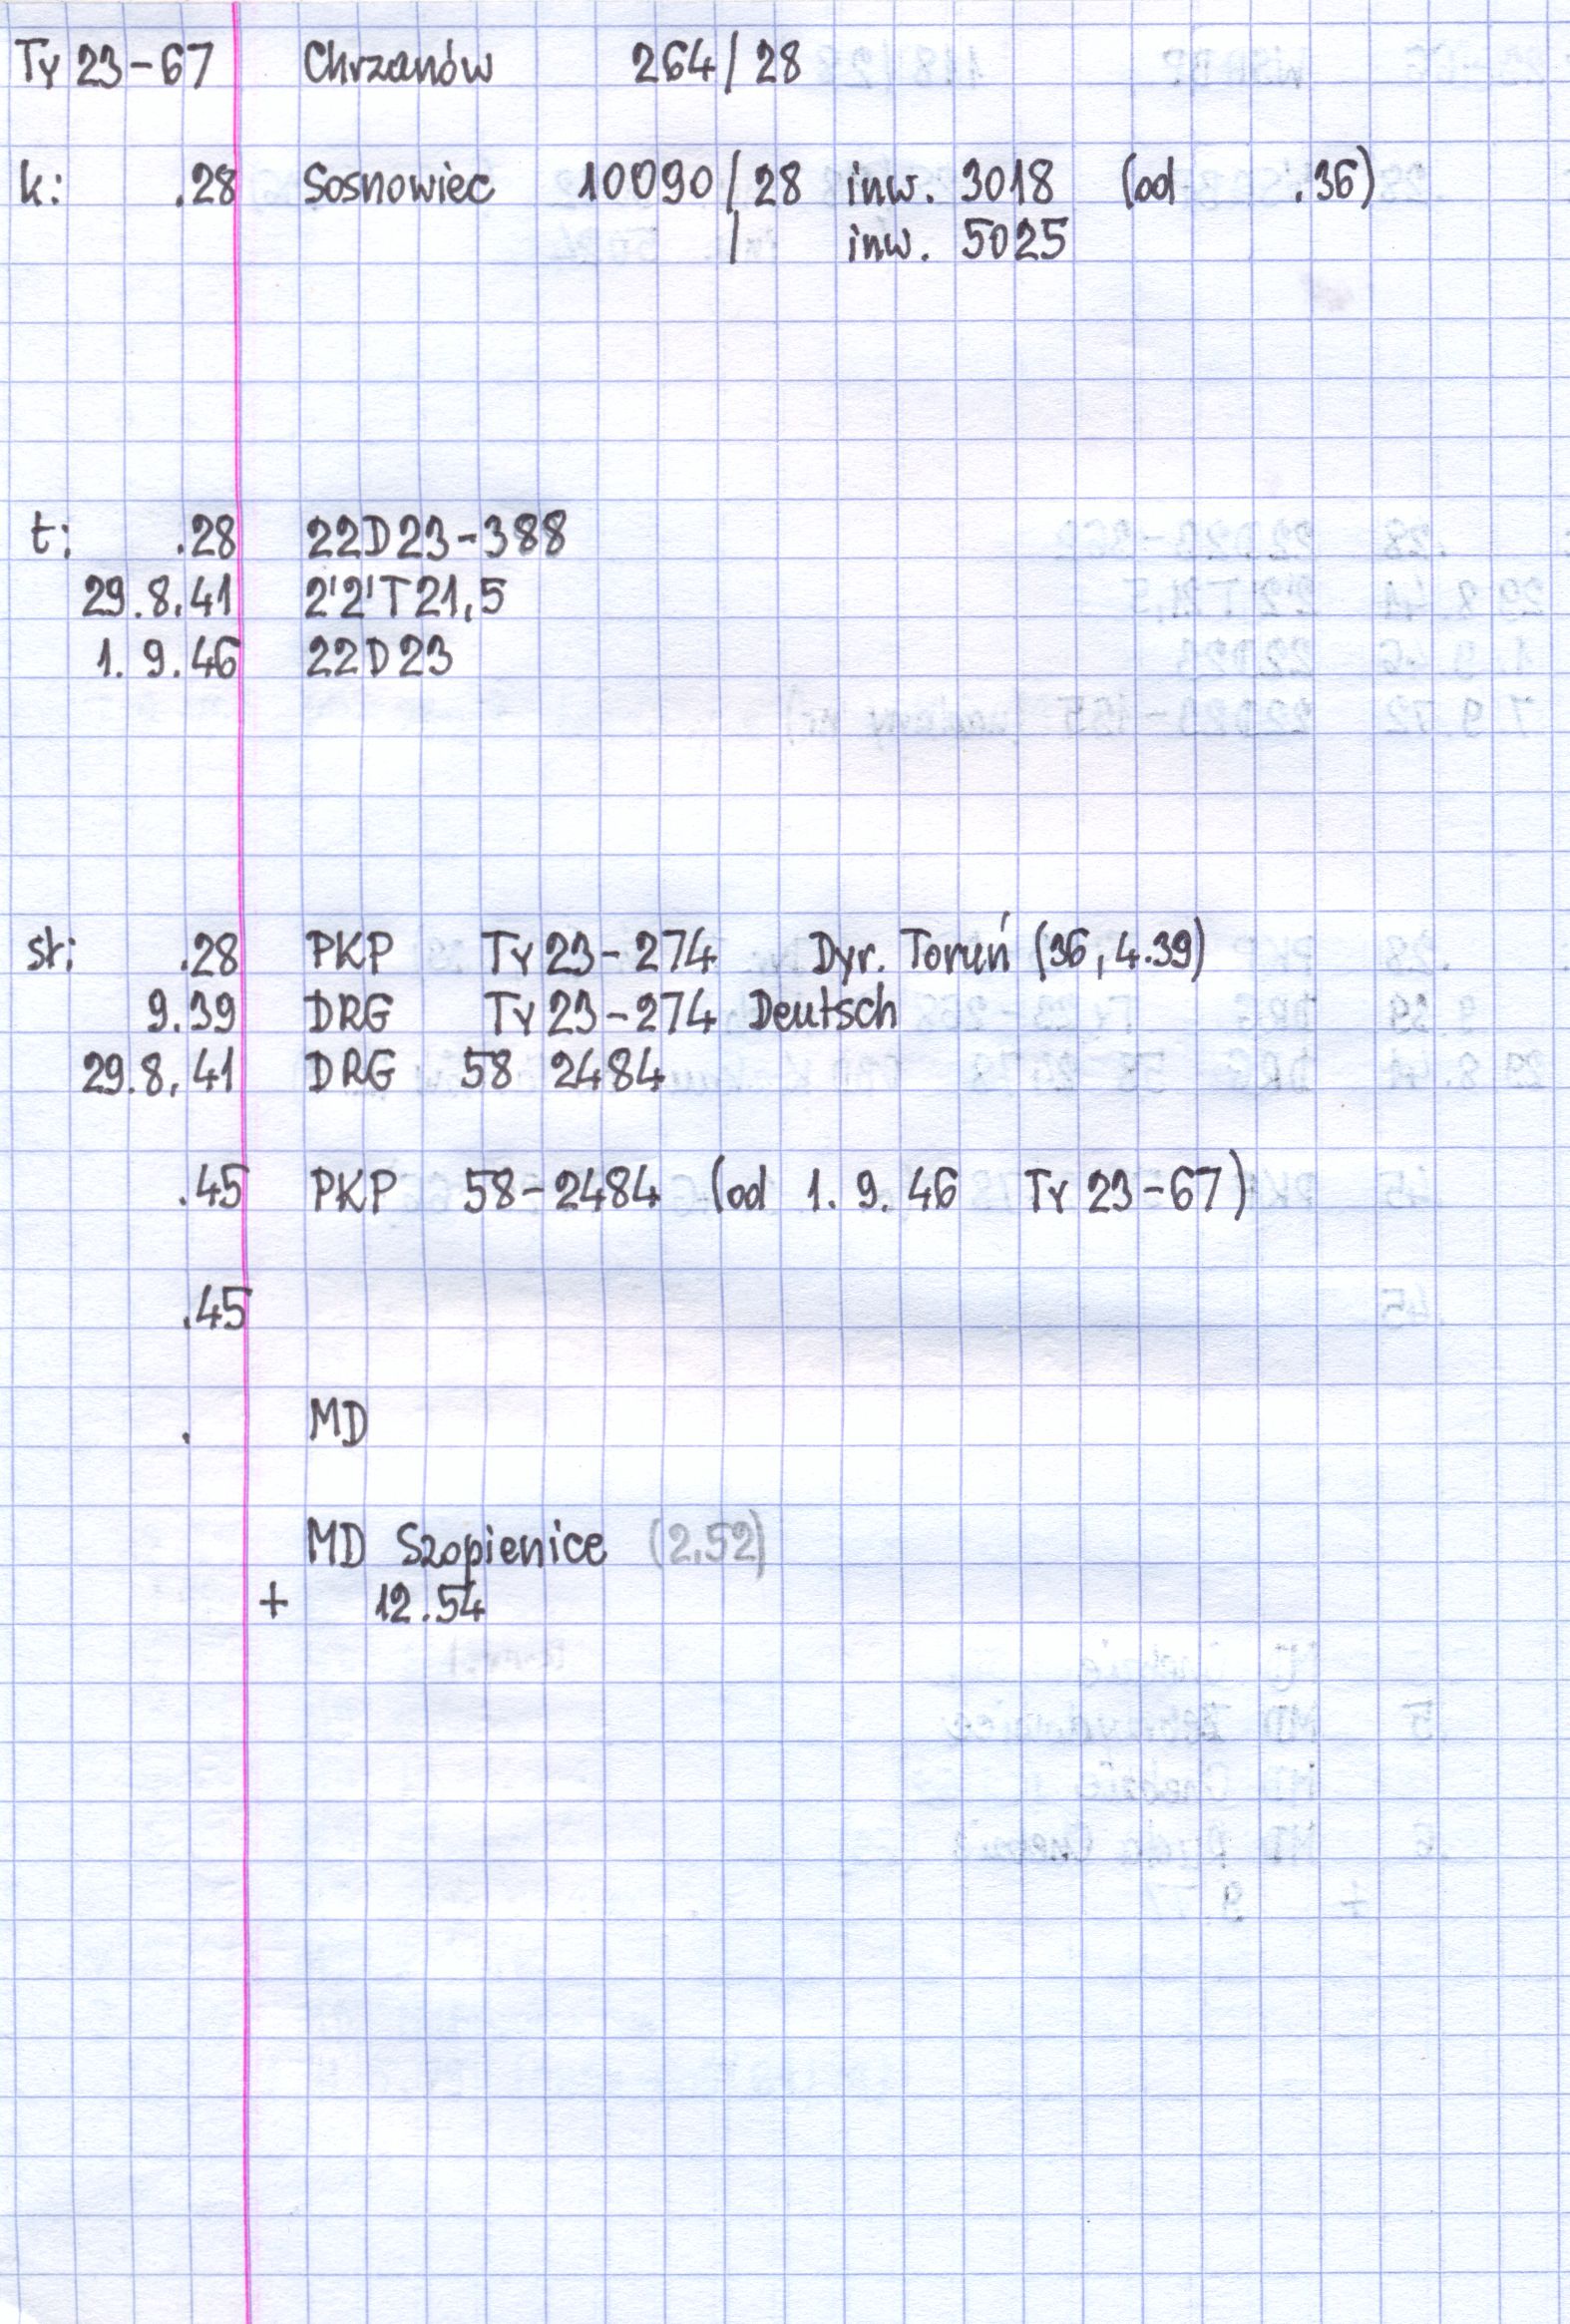 Ty 23-67 Chrzanów 264/28
k: .28 Sosnowiec 10090/28 inw. 3018 (od .36)
/ inw. 5025
t: .28 22D23-388
29.8.41 2'2'T21,5
1.9.46 22D23
st: .28 PKP Ty 23-274 Dyr. Toruń (36, 4.39)
9.39 DRG Ty 23-274 Deutsch
29.8.41 DRG 58 2484
.45 PKP 58-2484 (od 1.9.46 Ty 23-67)
.45
. MD
MD Szopienice (2.52)
+ 12.54